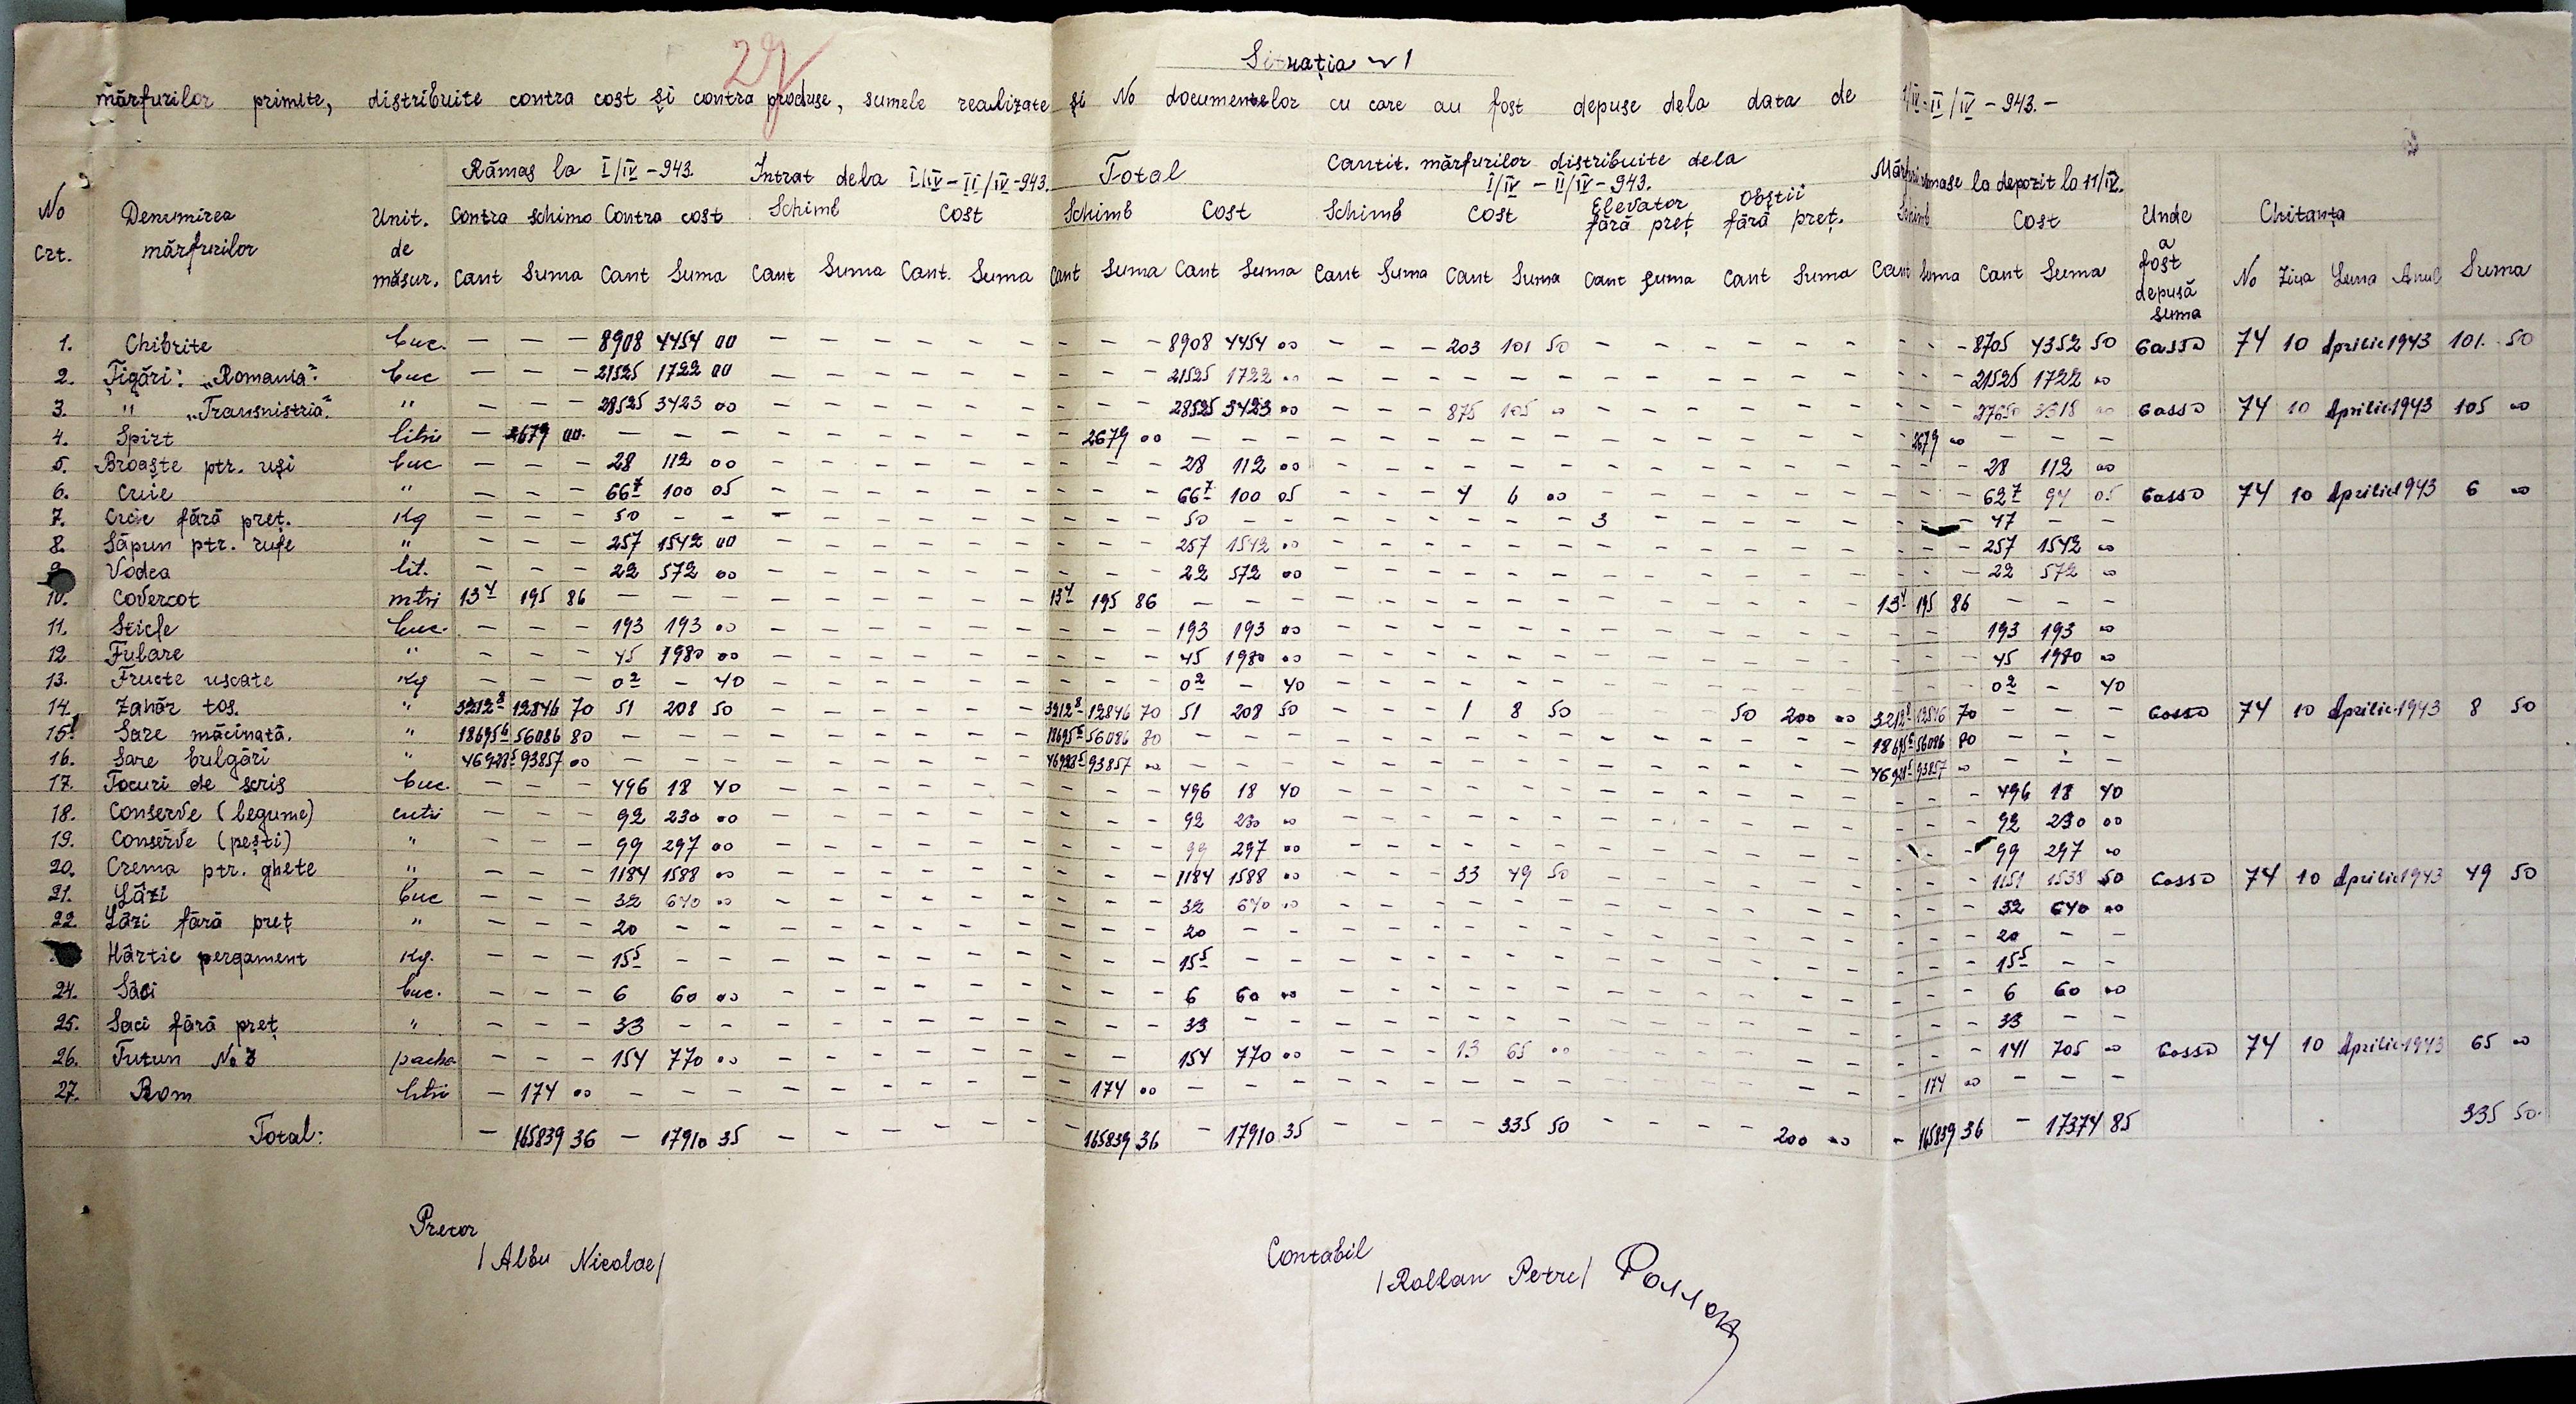 29
Situația № 1
mărfurilor primite, distribuite contra cost și contra produse, sumele realizate și No documentelor cu care au fost depuse dela data de I/IV - II/IV - 943. -
No crt. Denumirea mărfurilor Unit. de măsur. Rămas la I/IV - 943. Intrat dela I/IV - II/IV - 943. Total Cantit. mărfurilor distribuite dela I/IV - II/IV - 943. Mărfuri rămase la depozit la 11/IV. Unde a fost depusă suma Chitanța
Contra schimb Contra cost Schimb Cost Schimb Cost Schimb Cost Elevator fără preț Obștii fără preț. Schimb Cost
Cant Suma Cant Suma Cant Suma Cant. Suma Cant Suma Cant Suma Cant Suma Cant Suma Cant Suma Cant Suma Cant Suma Cant Suma No Ziua Luna Anul Suma
1. Chibrite buc. - - - 8908 4454 00 - - - - - - - - - 8908 4454 00 - - - 203 101 50 - - - - - - - - - 8705 4352 50 Casso 74 10 Aprilie 1943 101. 50
2. Țigări: „Romania". buc - - - 21525 1722 00 - - - - - - - - - 21525 1722 00 - - - - - - - - - - - - - - - 21525 1722 00
3. " „Transnistria". " - - - 28525 3423 00 - - - - - - - - - 28525 3423 00 - - - 875 105 00 - - - - - - - - - 27650 3318 00 Casso 74 10 Aprilie 1943 105 00
4. Spirt litri - 2679 00. - - - - - - - - - - 2679 00 - - - - - - - - - - - - - - - 2679 00 - - -
5. Broaște ptr. uși buc - - - 28 112 00 - - - - - - - - - 28 112 00 - - - - - - - - - - - - - - - 28 112 00
6. Cuie " - - - 66 7 100 05 - - - - - - - - - 66 7 100 05 - - - 4 6 00 - - - - - - - - - 62 7 94 05 Casso 74 10 Aprilie 1943 6 00
7. Cuie fără preț. Kg - - - 50 - - - - - - - - - - - 50 - - - - - - - - 3 - - - - - - - 47 - -
8. Săpun ptr. rufe " - - - 257 1542 00 - - - - - - - - - 257 1542 00 - - - - - - - - - - - - - - - 257 1542 00
9. Vodca lit. - - - 22 572 00 - - - - - - - - - 22 572 00 - - - - - - - - - - - - - - - 22 572 00
10. Covercot mtri 13 4 195 86 - - - - - - - - - 13 4 195 86 - - - - - - - - - - - - - - - 13 4 195 86 - - -
11. Sticle buc. - - - 193 193 00 - - - - - - - - - 193 193 00 - - - - - - - - - - - - - - 193 193 00
12 Fulare " - - - 45 1980 00 - - - - - - - - - 45 1980 00 - - - - - - - - - - - - - - 45 1980 00
13. Fructe uscate Kg - - - 0 2 - 40 - - - - - - - - - 0 2 - 40 - - - - - - - - - - - - - - 0 2 - 40
14. Zahăr tos. " 3212 8 12846 70 51 208 50 - - - - - - 3212 8 12846 70 51 208 50 - - - 1 8 50 50 200 00 3212 8 12846 70 - - - Casso 74 10 Aprilie 1943 8 50
15. Sare măcinată. " 18695 6 56086 80 - - - - - - - - - 18695 6 56086 80 - - - - - - - - - - - - - - - 18695 6 56086 80 - - -
16. Sare bulgări " 46928 5 93857 00 - - - - - - - - - 46928 5 93857 00 - - - - - - - - - - - - - - - 46928 5 93857 00 - - -
17. Tocuri de scris buc. - - - 496 18 40 - - - - - - - - - 496 18 40 - - - - - - - - - - - - - - - 496 18 40
18. Conserve (legume) cutii - - - 92 230 00 - - - - - - - - - 92 230 00 - - - - - - - - - - - - - - - 92 230 00
19. Conserve (pești) " - - - 99 297 00 - - - - - - - - - 99 297 00 - - - - - - - - - - - - - - 99 297 00
20. Crema ptr. ghete " - - - 1184 1588 00 - - - - - - - - - 1184 1588 00 - - - 33 49 50 - - - - - - - - - 1151 1538 50 Casso 74 10 Aprilie 1943 49 50
21. Lăzi buc - - - 32 640 00 - - - - - - - - - 32 640 00 - - - - - - - - - - - - - - - 32 640 00
22. Lăzi fără preț " - - - 20 - - - - - - - - - - - 20 - - - - - - - - - - - - - - - - - 20 - -
Hârtie pergament Kg. - - - 15 5 - - - - - - - - - - - 15 5 - - - - - - - - - - - - - - - - - 15 5 - -
24. Saci buc. - - - 6 60 00 - - - - - - - - - 6 60 00 - - - - - - - - - - - - - - - 6 60 00
25. Saci fără preț " - - - 33 - - - - - - - - - - - 33 - - - - - - - - - - - - - - - - - 33 - -
26. Tutun No 3 pache - - - 154 770 00 - - - - - - - - 154 770 00 - - - 13 65 00 - - - - - - - - - 141 705 00 Casso 74 10 Aprilie 1943 65 00
27. Rom litri - 174 00 - - - - - - - - - - 174 00 - - - - - - - - - - - - - 174 00 - - -
Total: - 165839 36 - 17910 35 - - - - - - - 165839 36 - 17910 35 - - - - 335 50 - - - - 200 00 - 165839 36 - 17374 85 335 50.
Pretor
/Albu Nicolae/
Contabil
/Rollan Petre/